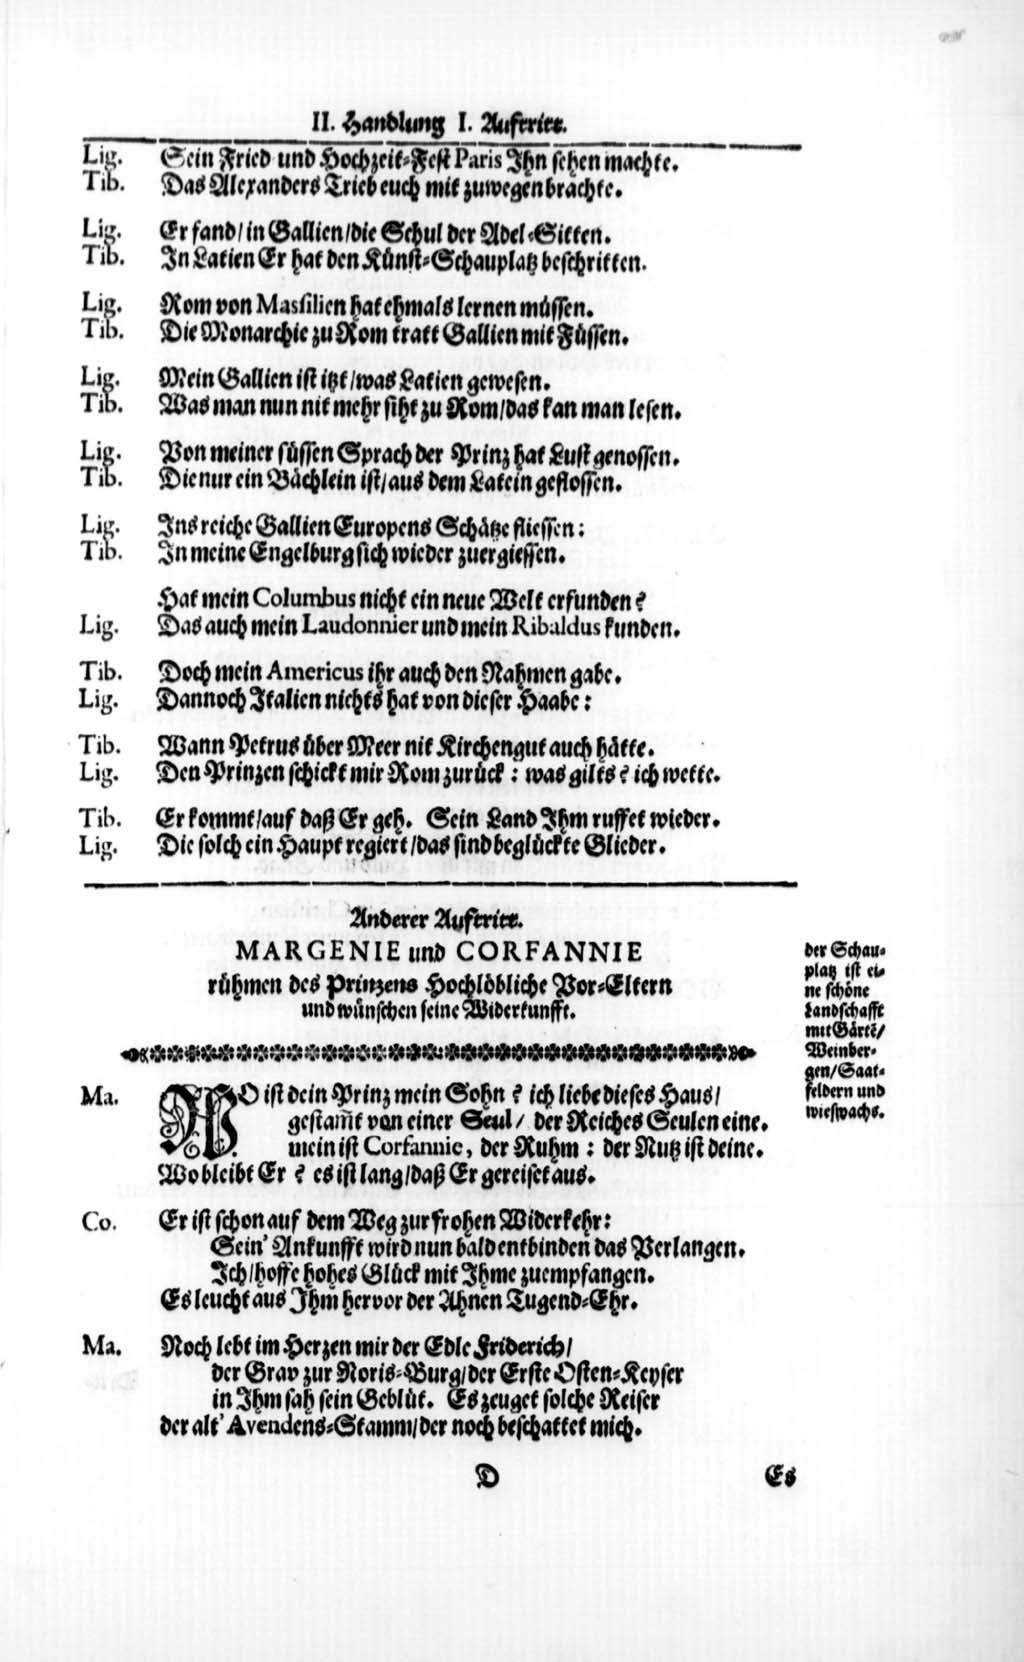 II. Handlung I. Auftritt.
Lig. Sein Fried- und Hochzeit-Fest Paris Ihn sehen machte.
Tib. Das Alexanders Trieb euch mit zuwegen brachte.
Lig. Er fand/ in Gallien/ die Schul der Adel-Sitten.
Tib. In Latien Er hat den Künst-Schauplatz beschritten.
Lig. Rom von Massilien hat ehmals lernen müssen.
Tib. Die Monarchie zu Rom tratt Gallien mit Füssen.
Lig. Mein Gallien ist itzt/ was Latien gewesen.
Tib. Was man nun nit mehr siht zu Rom/ das kan man lesen.
Lig. Von meiner süssen Sprach der Prinz hat Lust genossen.
Tib. Die nur ein Bächlein ist/ aus dem Latein geflossen.
Lig. Ins reiche Gallien Europens Schätze fliessen:
Tib. In meine Engelburg sich wieder zuergiessen.
Hat mein Columbus nicht ein neue Welt erfunden?
Lig. Das auch mein Laudonnier und mein Ribaldus kunden.
Tib. Doch mein Americus ihr auch den Nahmen gabe.
Lig. Dannoch Italien nichts hat von dieser Haabe:
Tib. Wann Petrus über Meer nit Kirchengut auch hätte.
Lig. Den Prinzen schickt mir Rom zurück: was gilts? ich wette.
Tib. Er kommt/ auf daß Er geh. Sein Land Ihm ruffet wieder.
Lig. Die solch ein Haupt regiert/ das sind beglückte Glieder.
Anderer Auftritt.
MARGENIE und CORFANNIE
rühmen des Prinzens Hochlöbliche Vor-Eltern
und wünschen seine Widerkunfft.
der Schau-
platz ist ei-
ne schöne
Landschafft
mit Gärtē/
Weinber-
gen/ Saat-
feldern und
wieswachs.
Ma. WO ist dein Prinz mein Sohn? ich liebe dieses Haus/
gestam̃t von einer Seul/ der Reiches Seulen eine.
mein ist Corfannie, der Ruhm: der Nutz ist deine.
Wo bleibt Er? es ist lang/ daß Er gereiset aus.
Co. Er ist schon auf dem Weg zur frohen Widerkehr:
Sein' Ankunfft wird nun bald entbinden das Verlangen.
Ich/ hoffe hohes Glück mit Ihme zuempfangen.
Es leucht aus Ihm hervor der Ahnen Tugend-Ehr.
Ma. Noch lebt im Herzen mir der Edle Friderich/
der Grav zur Noris-Burg/ der Erste Osten-Keyser
in Ihm sah sein Geblüt. Es zeuget solche Reiser
der alt' Avendens-Stamm/ der noch beschattet mich.
D Es